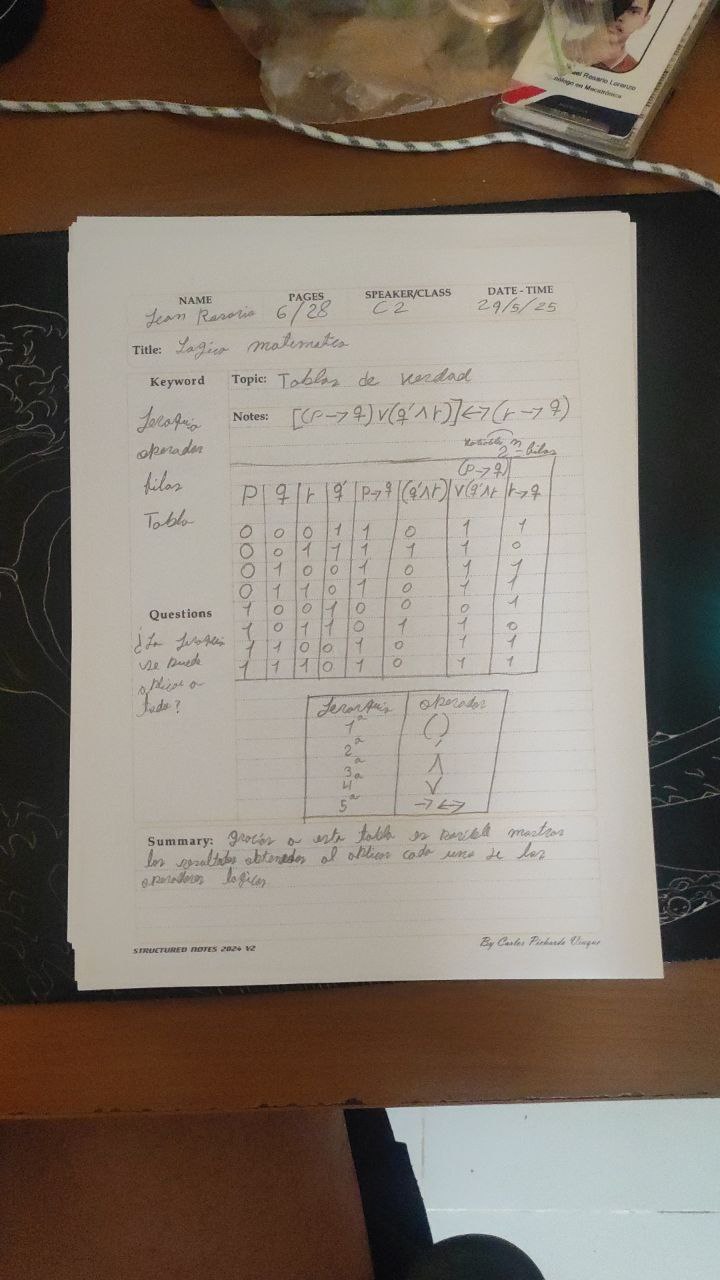 el Rosario Lorenzo
ólogo en Mecatrónica
NAME PAGES SPEAKER/CLASS DATE - TIME
Jean Rosario 6/28 C2 29/5/25
Title: Logica matematica
Keyword
Jerarquia
operador
filas
Tabla
Topic: Tablas de verdad
Notes: [(p→q)∨(q'∧r)]↔(r→q)
2ⁿ = filas
(p→q)
p q r q' p→q (q'∧r) ∨(q'∧r r→q
0 0 0 1 1 0 1 1
0 0 1 1 1 1 1 0
0 1 0 0 1 0 1 1
0 1 1 0 1 0 1 1
1 0 0 1 0 0 0 1
1 0 1 1 0 1 1 0
1 1 0 0 1 0 1 1
1 1 1 0 1 0 1 1
Questions
¿La Jerarquia
se puede
aplicar a
todo?
Jerarquia operador
1ª ()
2ª '
3ª ∧
4ª ∨
5ª → ↔
Summary: gracias a esta tabla es posible mostrar
los resultados obtenidos al aplicar cada uno de los
operadores logicos
STRUCTURED NOTES 2024 V2
By Carlos Pichardo Viuque